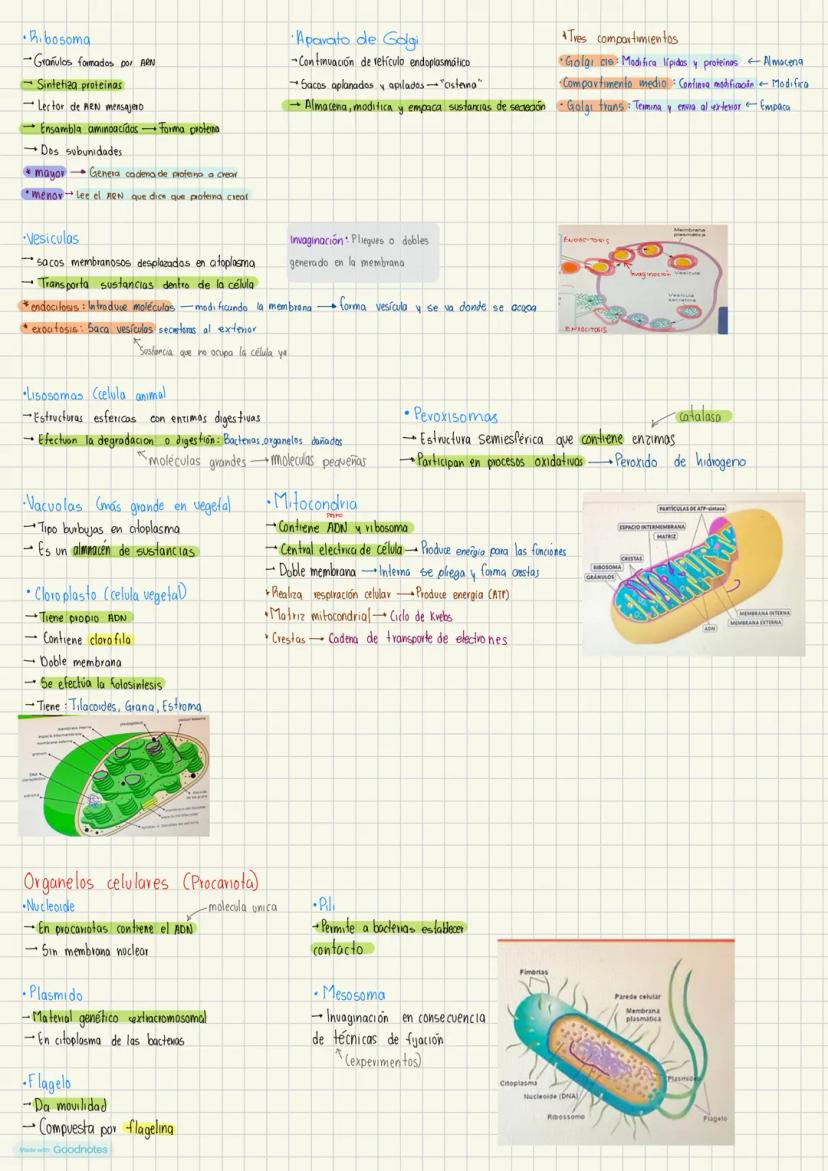 ·Ribosoma
→ Gránulos formados por ARN
→ Sintetiza proteínas
→ Lector de ARN mensajero
→ Ensambla aminoacidos → Forma proteína
→ Dos subunidades
* mayor → Genera cadena de proteina a crear
* menor → Lee el ARN que dice que proteina crear
·Aparato de Golgi
→ Continuación de retículo endoplasmático
→ Sacos aplanados y apilados → "cisterna"
→ Almacena, modifica y empaca sustancias de secreción
*Tres compartimientos
·Golgi cis: Modifica lípidos y proteínas ← Almacena
·Compartimento medio: Continua modificación ← Modifica
·Golgi trans: Termina y envia al exterior ← Empaca
·Vesiculas
→ sacos membranosos desplazados en citoplasma
→ Transporta sustancias dentro de la célula
* endocitosis: Introduce moléculas → modificando la membrana → forma vesícula y se va donde se ocupa
* exocitosis: Saca vesículas secretoras al exterior
Sustancia que no ocupa la célula ya
Invaginación: Pliegues o dobles
generado en la membrana
ENDOCITOSIS
Membrana
plasmática
Invaginación
Vesícula
Vesícula
secretora
·Lisosomas (celula animal)
→ Estructuras esfericas con enzimas digestivas
→ Efectuan la degradacion o digestión: Bacterias, organelos dañados
moléculas grandes → moleculas pequeñas
· Peroxisomas
catalasa
→ Estructura Semiesférica que contiene enzimas
→ Participan en procesos oxidativos → Peroxido de hidrogeno
·Vacuolas (más grande en vegetal)
→ Tipo burbujas en citoplasma
→ Es un almacén de sustancias
· Mitocondria
propio
→ Contiene ADN y ribosoma
→ Central electrica de célula → Produce energía para las funciones
→ Doble membrana → Interna se pliega y forma crestas
* Realiza respiración celular → Produce energía (ATP)
* Matriz mitocondrial → Ciclo de Krebs
* Crestas → Cadena de transporte de electrones
PARTÍCULAS DE ATP-sintasa
ESPACIO INTERMEMBRANA
MATRIZ
CRESTAS
RIBOSOMA
GRÁNULOS
MEMBRANA INTERNA
MEMBRANA EXTERNA
ADN
· Cloroplasto (celula vegetal)
→ Tiene propio ADN
→ Contiene clorofila
→ Doble membrana
→ Se efectúa la fotosintesis
→ Tiene: Tilacoides, Grana, Estroma
Organelos celulares (Procariota)
·Nucleoide
molecula unica
→ En procariotas contiene el ADN
→ Sin membrana nuclear
· Plasmido
→ Material genético extracromosomal
→ En citoplasma de las bacterias
·Flagelo
→ Da movilidad
→ Compuesta por flagelina
· Pili
→ Permite a bacterias establecer
contacto
· Mesosoma
→ Invaginación en consecuencia
de técnicas de fijación
(experimentos)
Fimbrias
Parede celular
Membrana
plasmática
Citoplasma
Nucleoide (DNA)
Ribossomo
Plasmídeo
Flagelo
Made with Goodnotes